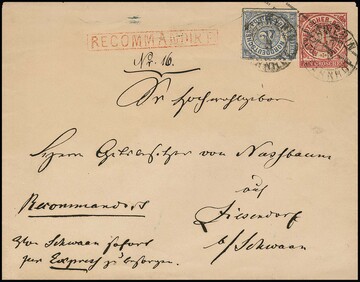 RECOMMANDIRT
No. 16.
Sr Hochwohlgeboren
Herrn Gutsbesitzer von Nussbaum
auf
Recommandirt
Ziesendorf
Von Schwaan sofort
b/Schwaan
zur Express zu besorgen.